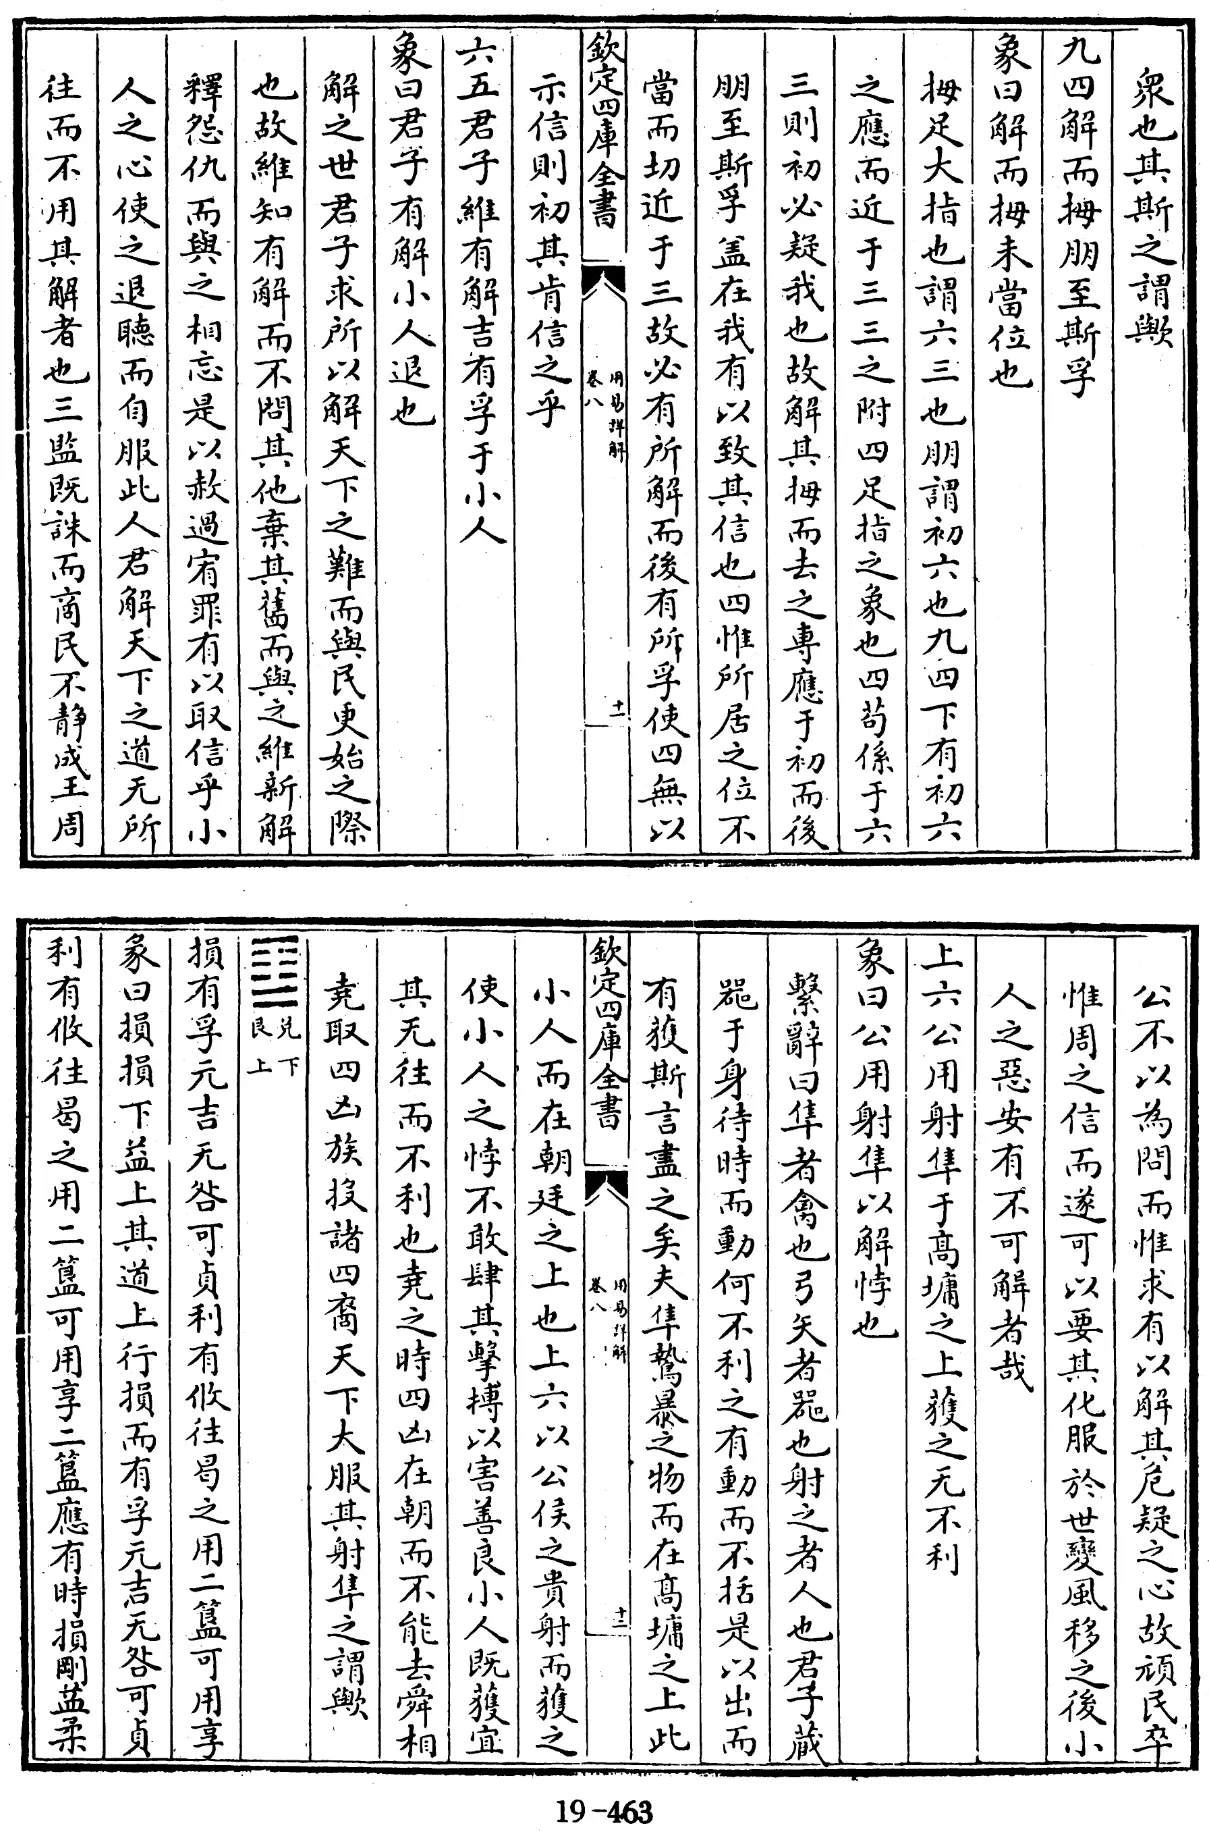 衆也其斯之謂歟
九四解而拇朋至斯孚
象曰解而拇未當位也
拇足大指也謂六三也朋謂初六也九四下有初六
之應而近于三三之附四足指之象也四苟係于六
三則初必疑我也故解其拇而去之專應于初而後
朋至斯孚盖在我有以致其信也四惟所居之位不
當而切近于三故必有所解而後有所孚使四無以
欽定四庫全書
用易詳解
卷八
十一
示信則初其肯信之乎
六五君子維有解吉有孚于小人
象曰君子有解小人退也
解之世君子求所以解天下之難而與民更始之際
也故維知有解而不問其他棄其舊而與之維新解
釋怨仇而與之相忘是以赦過宥罪有以取信乎小
人之心使之退聽而自服此人君解天下之道无所
往而不用其解者也三監既誅而商民不静成王周
公不以為問而惟求有以解其危疑之心故頑民卒
惟周之信而遂可以要其化服於世變風移之後小
人之惡安有不可解者哉
上六公用射隼于髙墉之上獲之无不利
象曰公用射隼以解悖也
繫辭曰隼者禽也弓矢者器也射之者人也君子藏
器于身待時而動何不利之有動而不括是以出而
有獲斯言盡之矣夫隼鷙暴之物而在髙墉之上此
欽定四庫全書
用易詳解
卷八
十二
小人而在朝廷之上也上六以公侯之貴射而獲之
使小人之悖不敢肆其擊搏以害善良小人既獲宜
其无往而不利也堯之時四凶在朝而不能去舜相
堯取四凶族投諸四裔天下大服其射隼之謂歟
䷨兌下
艮上
損有孚元吉无咎可貞利有攸往曷之用二簋可用享
彖曰損損下益上其道上行損而有孚元吉无咎可貞
利有攸往曷之用二簋可用享二簋應有時損剛益柔
19-463